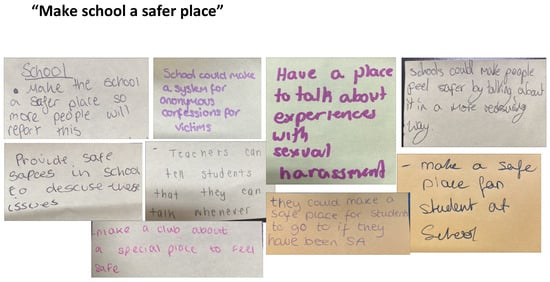 “Make school a safer place”
School
• Make the school
a safer place so
more people will
report this
School could make
a system for
anonymous
confessions for
victims
Have a place
to talk about
experiences
with
sexual
harassment
Schools could make people
feel safer by talking about
it in a more
way.
Provide safe
in school
to descuse these
issues
- Teachers can
tell students
that they can
talk whenever
they could make a
safe place for students
to go to if they
have been SA
- make a safe
place for
student at
School
make a club about
a special place to feel
safe